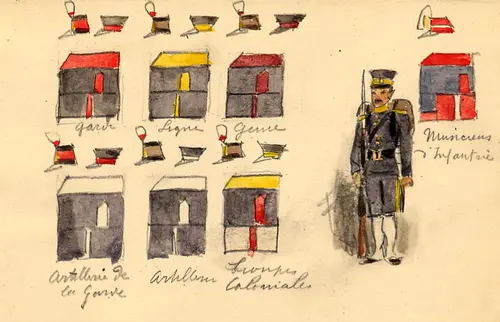 Garde
Ligne
Genie
Musiciens
d'Infantrie
Artillerie de
la Garde
Artillerie
Troupes
Coloniales